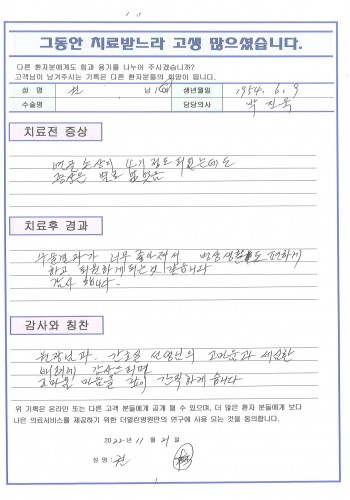 그동안 치료받느라 고생 많으셨습니다.
다른 환자분에게도 힘과 용기를 나누어 주시겠습니까?
고객님이 남겨주시는 기록은 다른 환자분들의 희망이 됩니다.
성 명 전 남 여 생년월일 1954. 6. 9
수술명 담당의사 박진욱
치료전 증상
정도 되었는데도
증상은 별로 없었음
치료후 경과
수술결과가 너무 좋아져서 일상생활도 편하게
하고 퇴원하게되는것 같습니다
감사합니다.
감사와 칭찬
원장님과 간호를 고마운과 세심한
배려에 감사드리며
고마운 마음을 깊이 간직하게습니다
위 기록은 온라인 또는 다른 고객 분들에게 공개 될 수 있으며, 더 많은 환자 분들에게 보다
나은 의료서비스를 제공하기 위한 더열린병원만의 연구에 사용 되는 것을 동의합니다.
2022년 11월 21일
성명 : 전